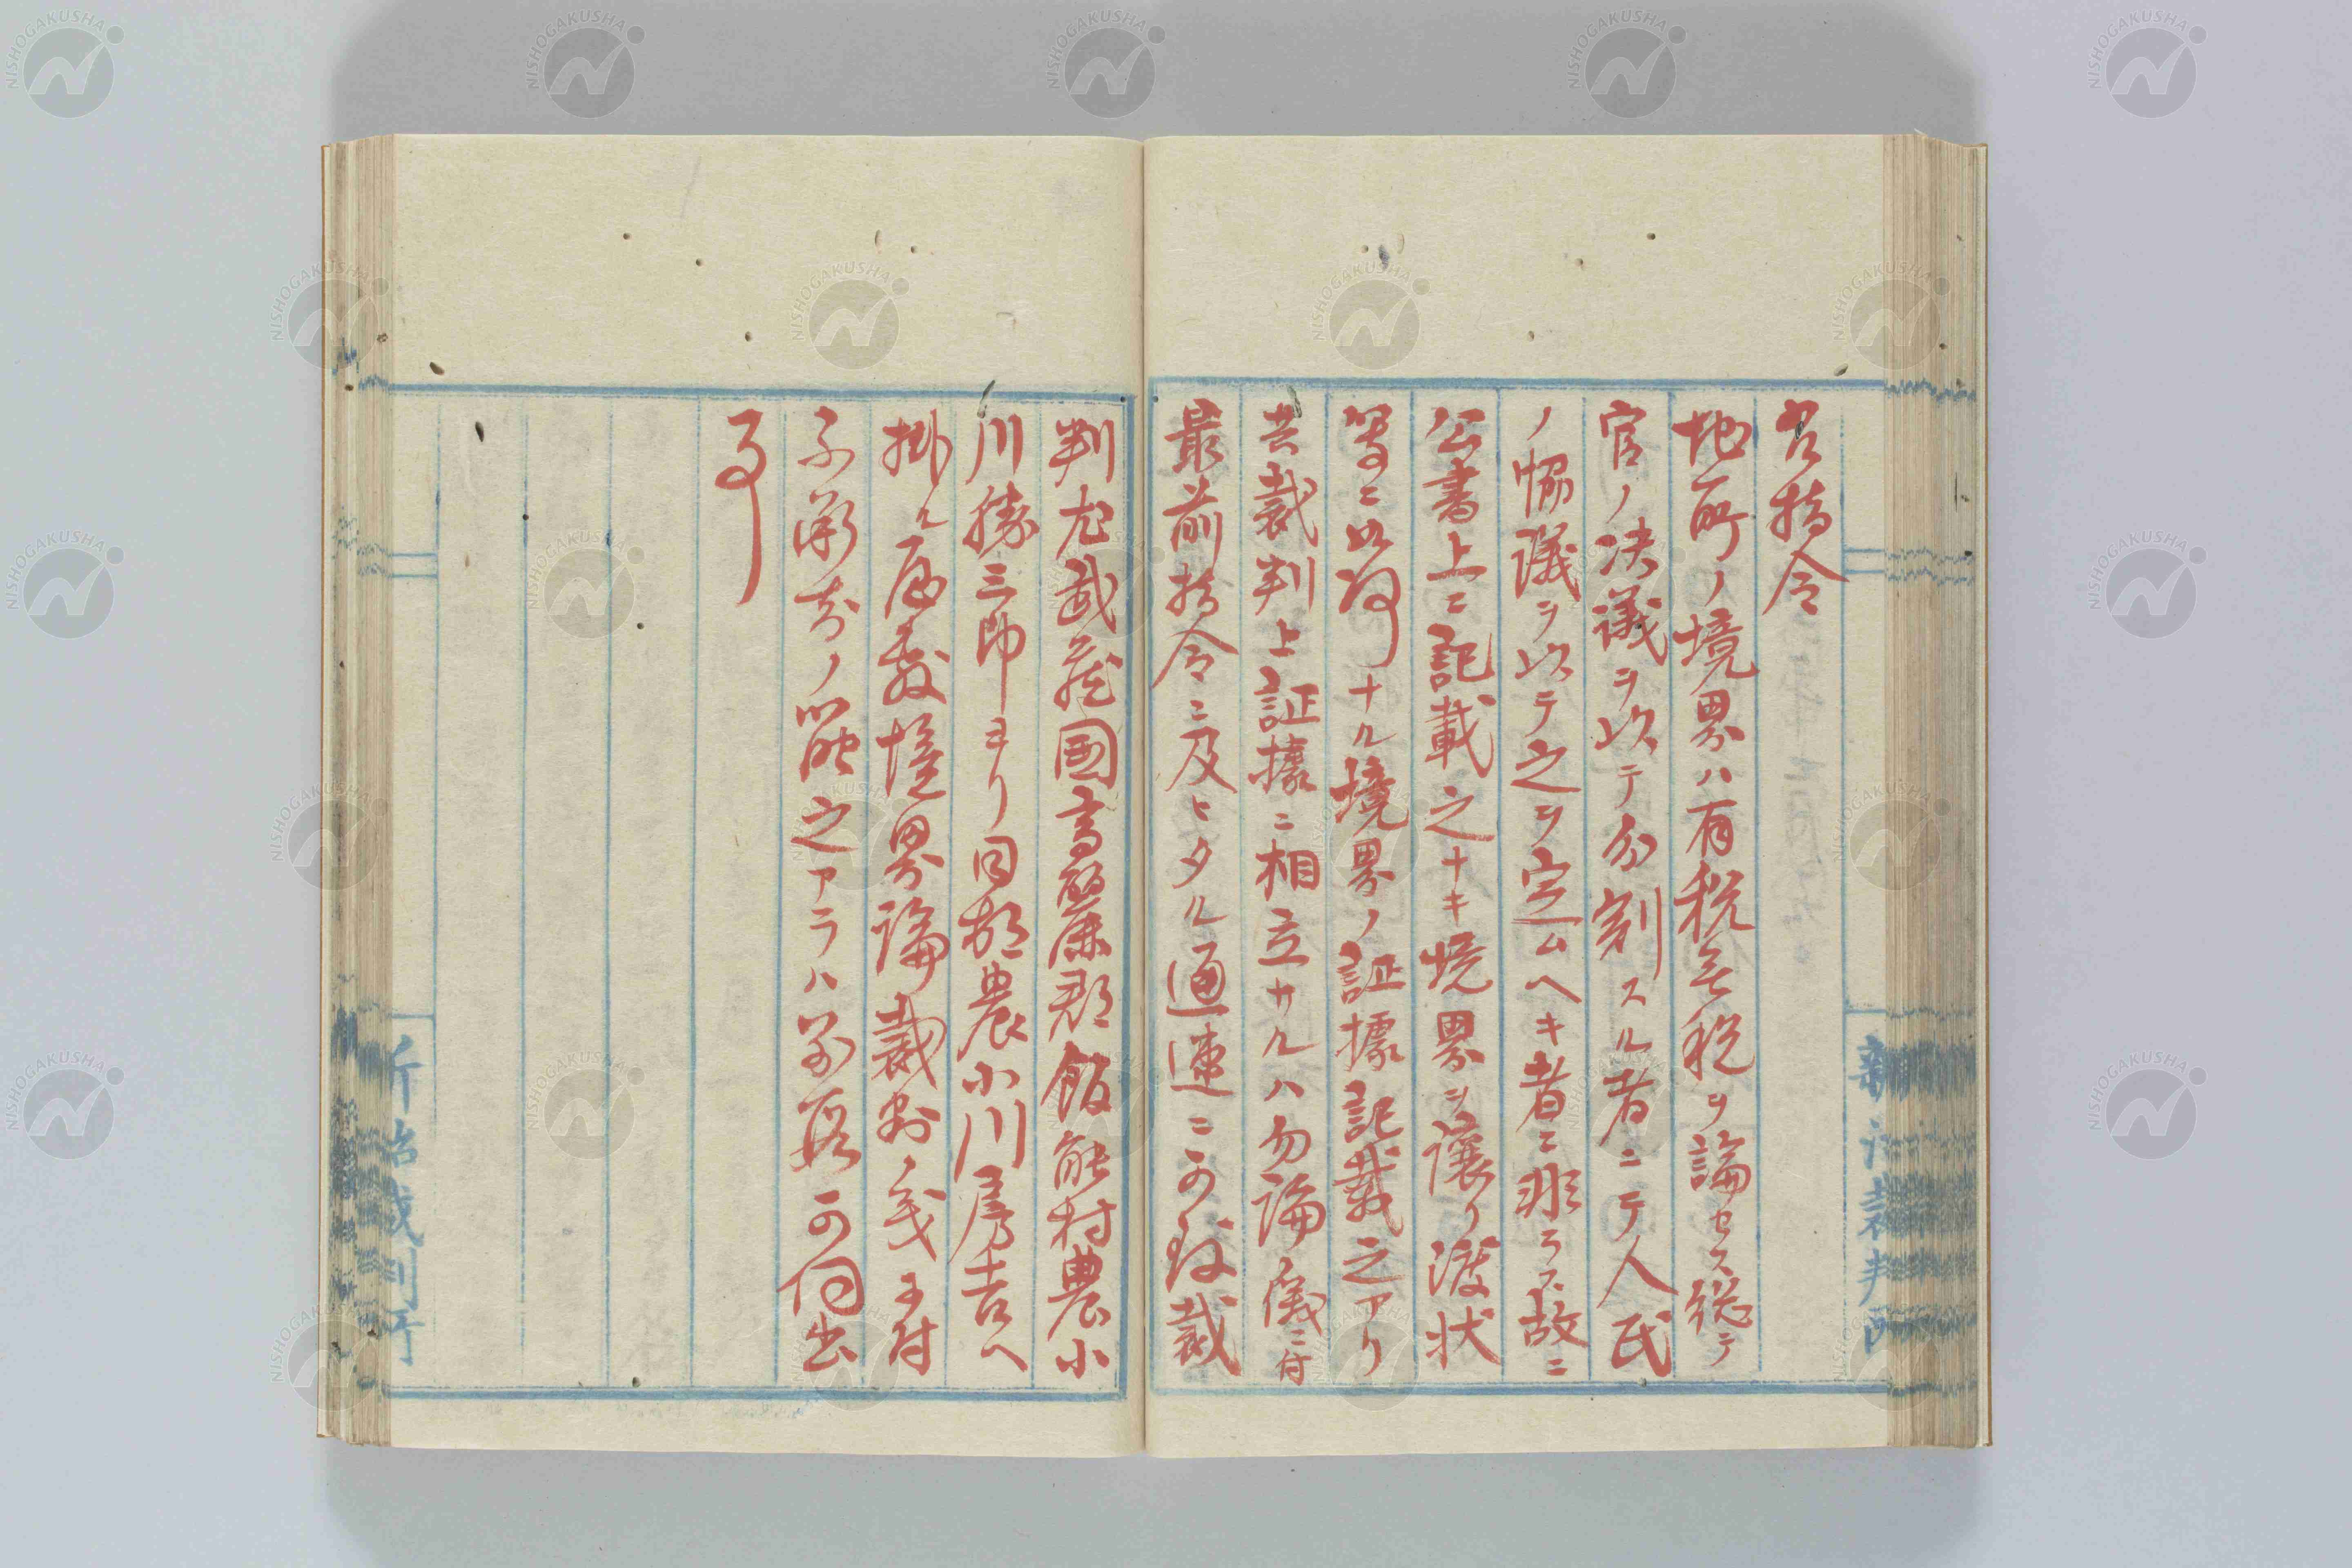 右指令
地所ノ境界ハ有税無税ヲ論セス総テ
官ノ決議ヲ以テ分割スル者ニテ人民
ノ協議ヲ以テ之ヲ定ムヘキ者ニ非ラス故ニ
公書上ニ記載之ナキ境界ヲ譲リ渡状
等ニ如何ナル境界ノ証據記載之アリ
共裁判上証據ニ相立サルハ勿論ノ儀ニ付
最前指令ニ及ヒタル通速ニ可致裁
判尤武蔵國高麗郡飯能村農小
川勝三郎ヨリ同郡農小川房吉ヘ
掛ル 境界論裁判ノ義ニ付
不審 之アラハ 可伺出
事
新治裁判所
NISHOGAKUSHA